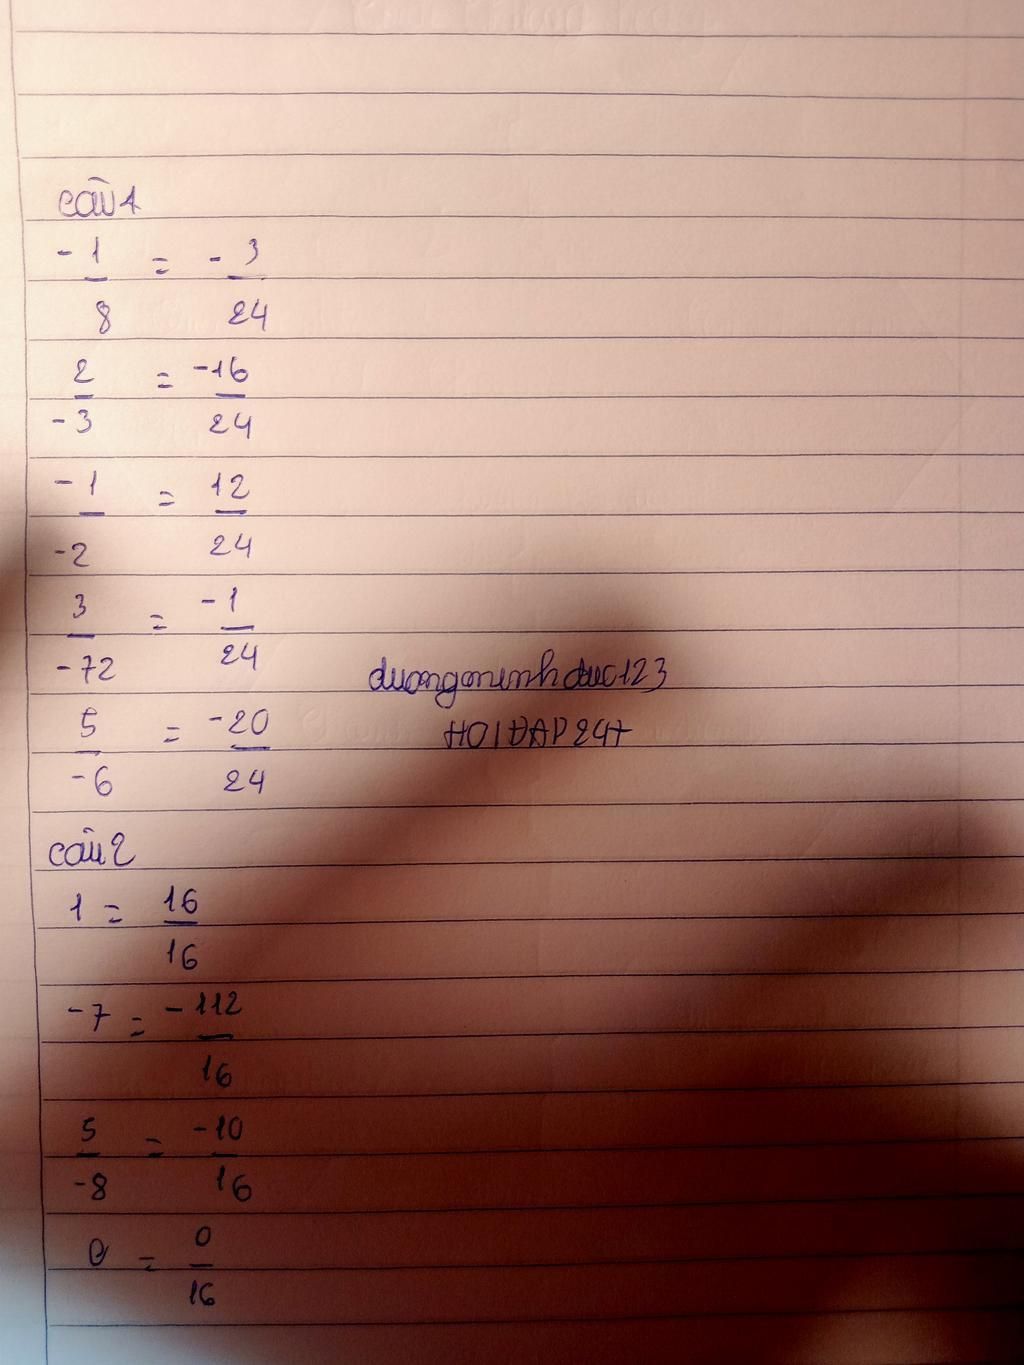 câu 1
-1/8 = -3/24
2/-3 = -16/24
-1/-2 = 12/24
3/-72 = -1/24
5/-6 = -20/24
duongminhduc123
HOIDAP247
câu 2
1 = 16/16
-7 = -112/16
5/-8 = -10/16
0 = 0/16